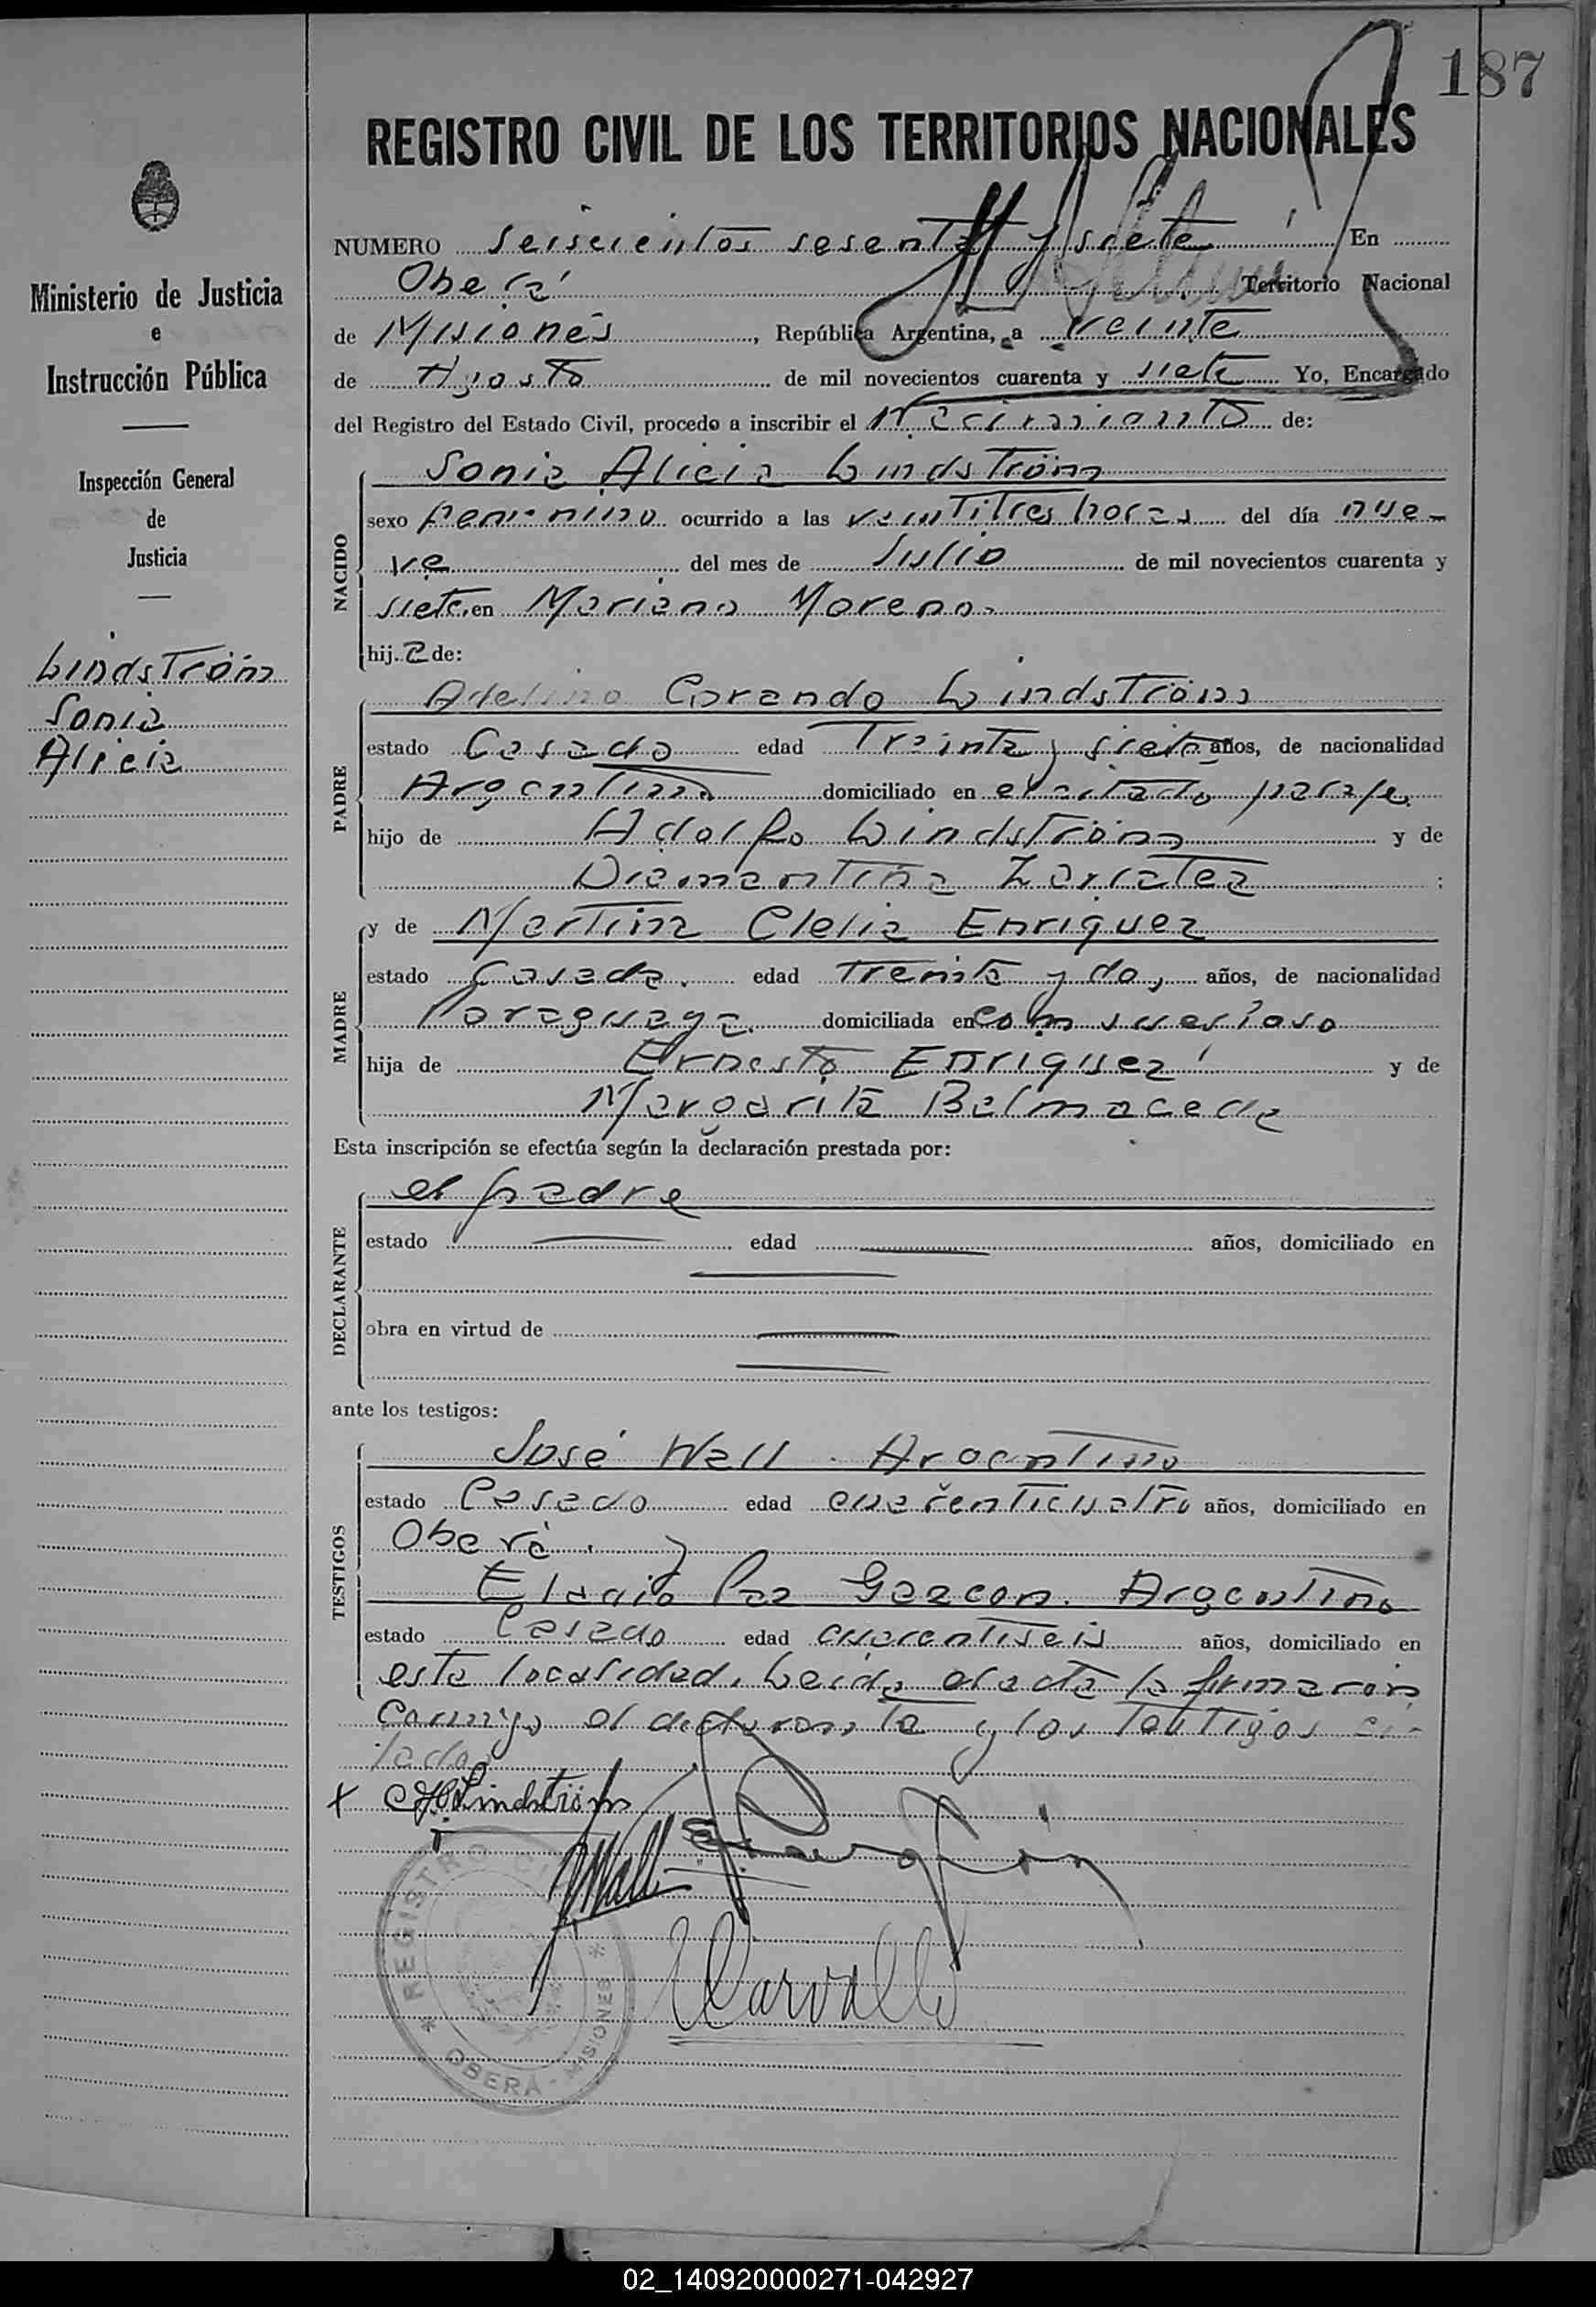 187
REGISTRO CIVIL DE LOS TERRITORIOS NACIONALES
Ministerio de Justicia
e
Instrucción Pública
Inspección General
de
Justicia
Lindström
Sonia
Alicia
NUMERO seiscientos sesenta y siete En
Oberá Territorio Nacional
de Misiones, República Argentina, a veinte
de Agosto de mil novecientos cuarenta y siete Yo, Encargado
del Registro del Estado Civil, procedo a inscribir el Nacimiento de:
NACIDO
Sonia Alicia Lindström
sexo femenino ocurrido a las veintitres horas del día nue-
ve del mes de Julio de mil novecientos cuarenta y
siete, en Mariano Moreno.
hija de:
PADRE
Adelino Lindström
estado Casado edad Treinta y siete años, de nacionalidad
Argentino domiciliado en el citado paraje
hijo de Adolfo Lindström y de
Diamantina Zarratea;
MADRE
y de Martina Clelia Enriquez
estado Casada. edad Treinta y dos, años, de nacionalidad
Paraguaya. domiciliada en con su esposo
hija de Ernesto Enriquez y de
Margarita Balmaceda
Esta inscripción se efectúa según la declaración prestada por:
DECLARANTE
el padre
estado edad años, domiciliado en
obra en virtud de
ante los testigos:
TESTIGOS
José Wall. Argentino
estado Casado edad cuarenticuatro años, domiciliado en
Oberá. y
Eladio Paz Argentino
estado Casado edad cuarentiseis años, domiciliado en
esta localidad. Leida el acta la firmaron
conmigo el declarante y los testigos ci-
tados
Lindström
JWall
Carvallo
* REGISTRO CIVIL * OBERÁ - MISIONES
02_140920000271-042927